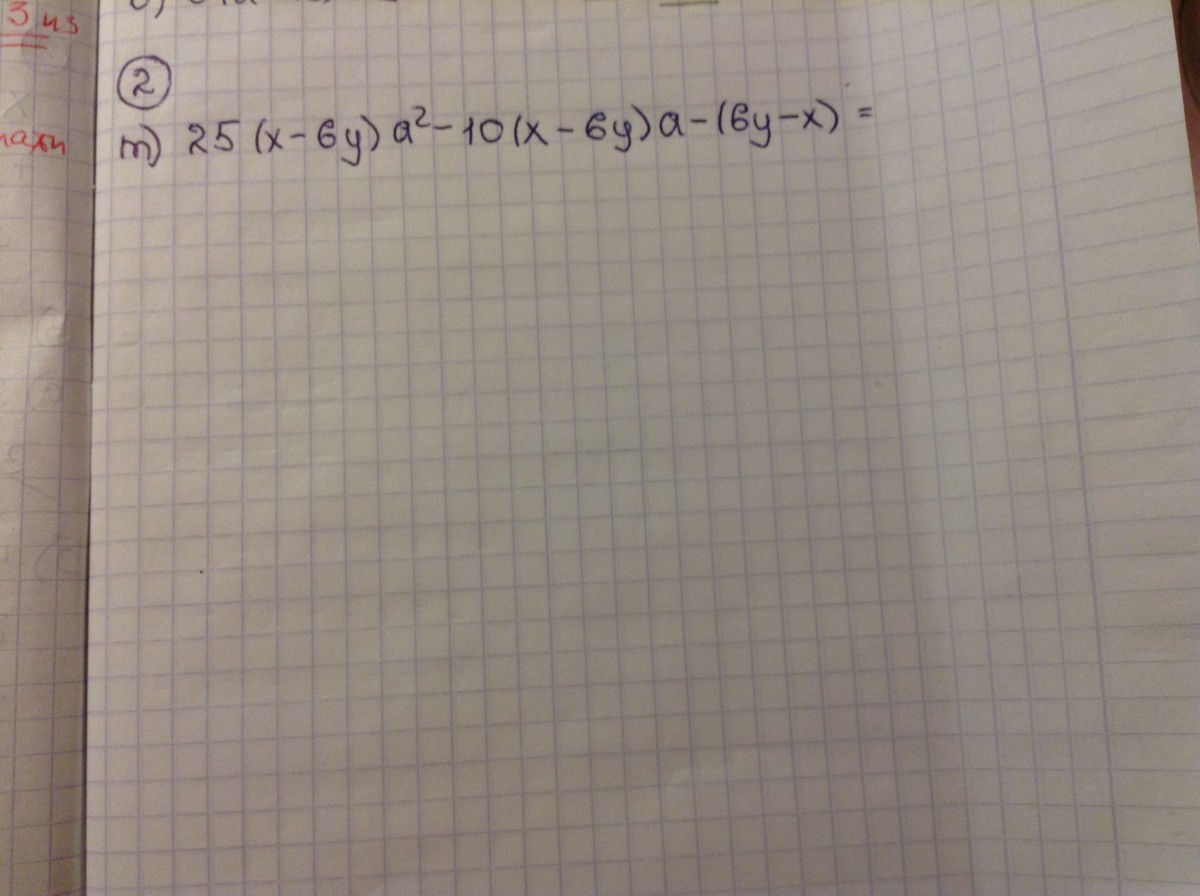 3 из
②
m) 25 (x - 6y) a² - 10 (x - 6y) a - (6y - x) =